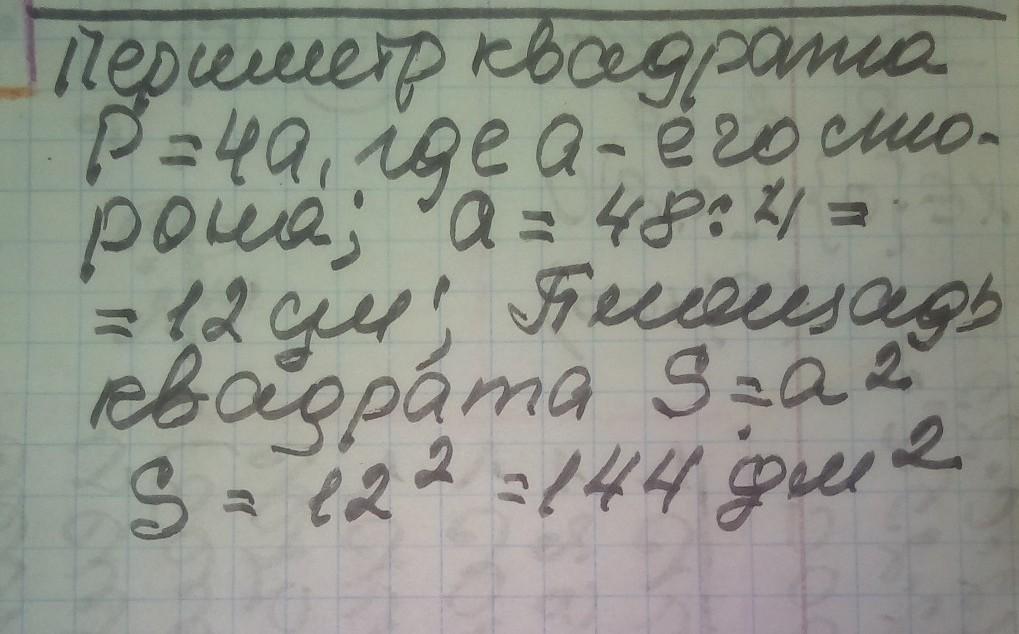 Периметр квадрата
P = 4a, где a - его сто-
рона; a = 48 : 4 =
= 12 дм; Площадь
квадрата S = a²
S = 12² = 144 дм²